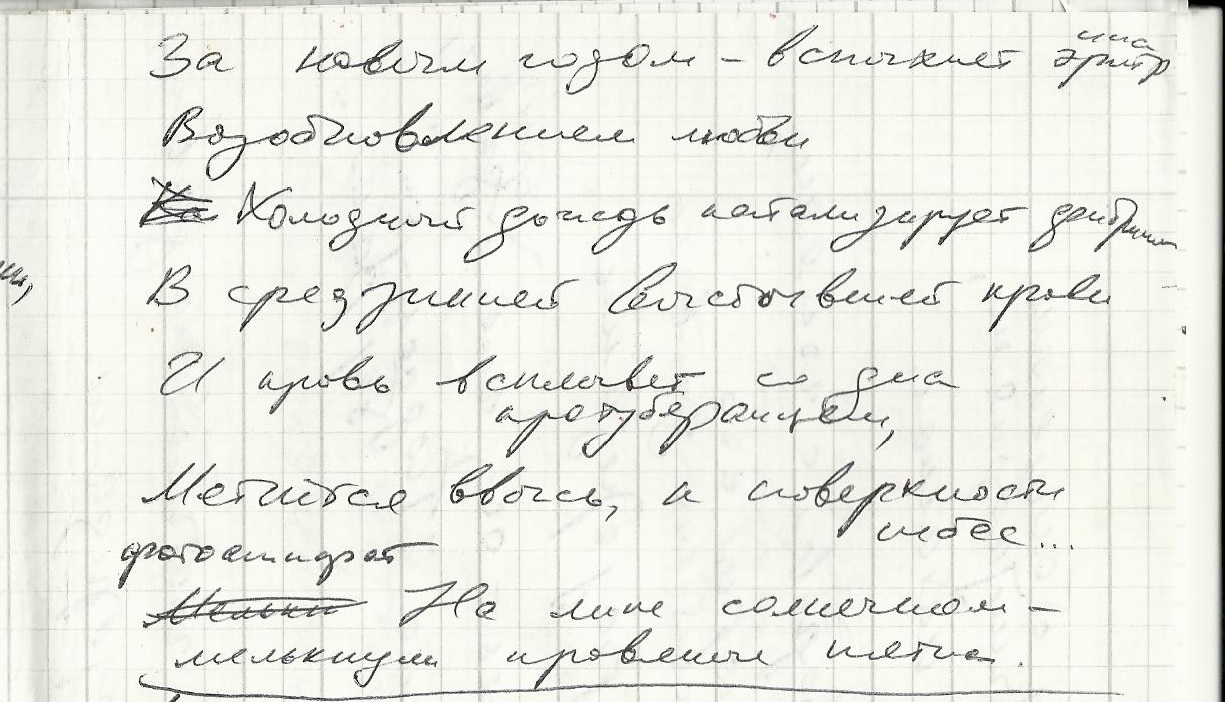 За новым годом – вспыхнет
Возобновлением любви
Холодный дождь катализирует
В сред зимней выстывшей крови
И кровь всплывет со дна
протуберанцем,
Метнётся ввысь, к поверхности
небес...
фотоаппарат
На лике солнечном –
мелькнули кровяные пятна.